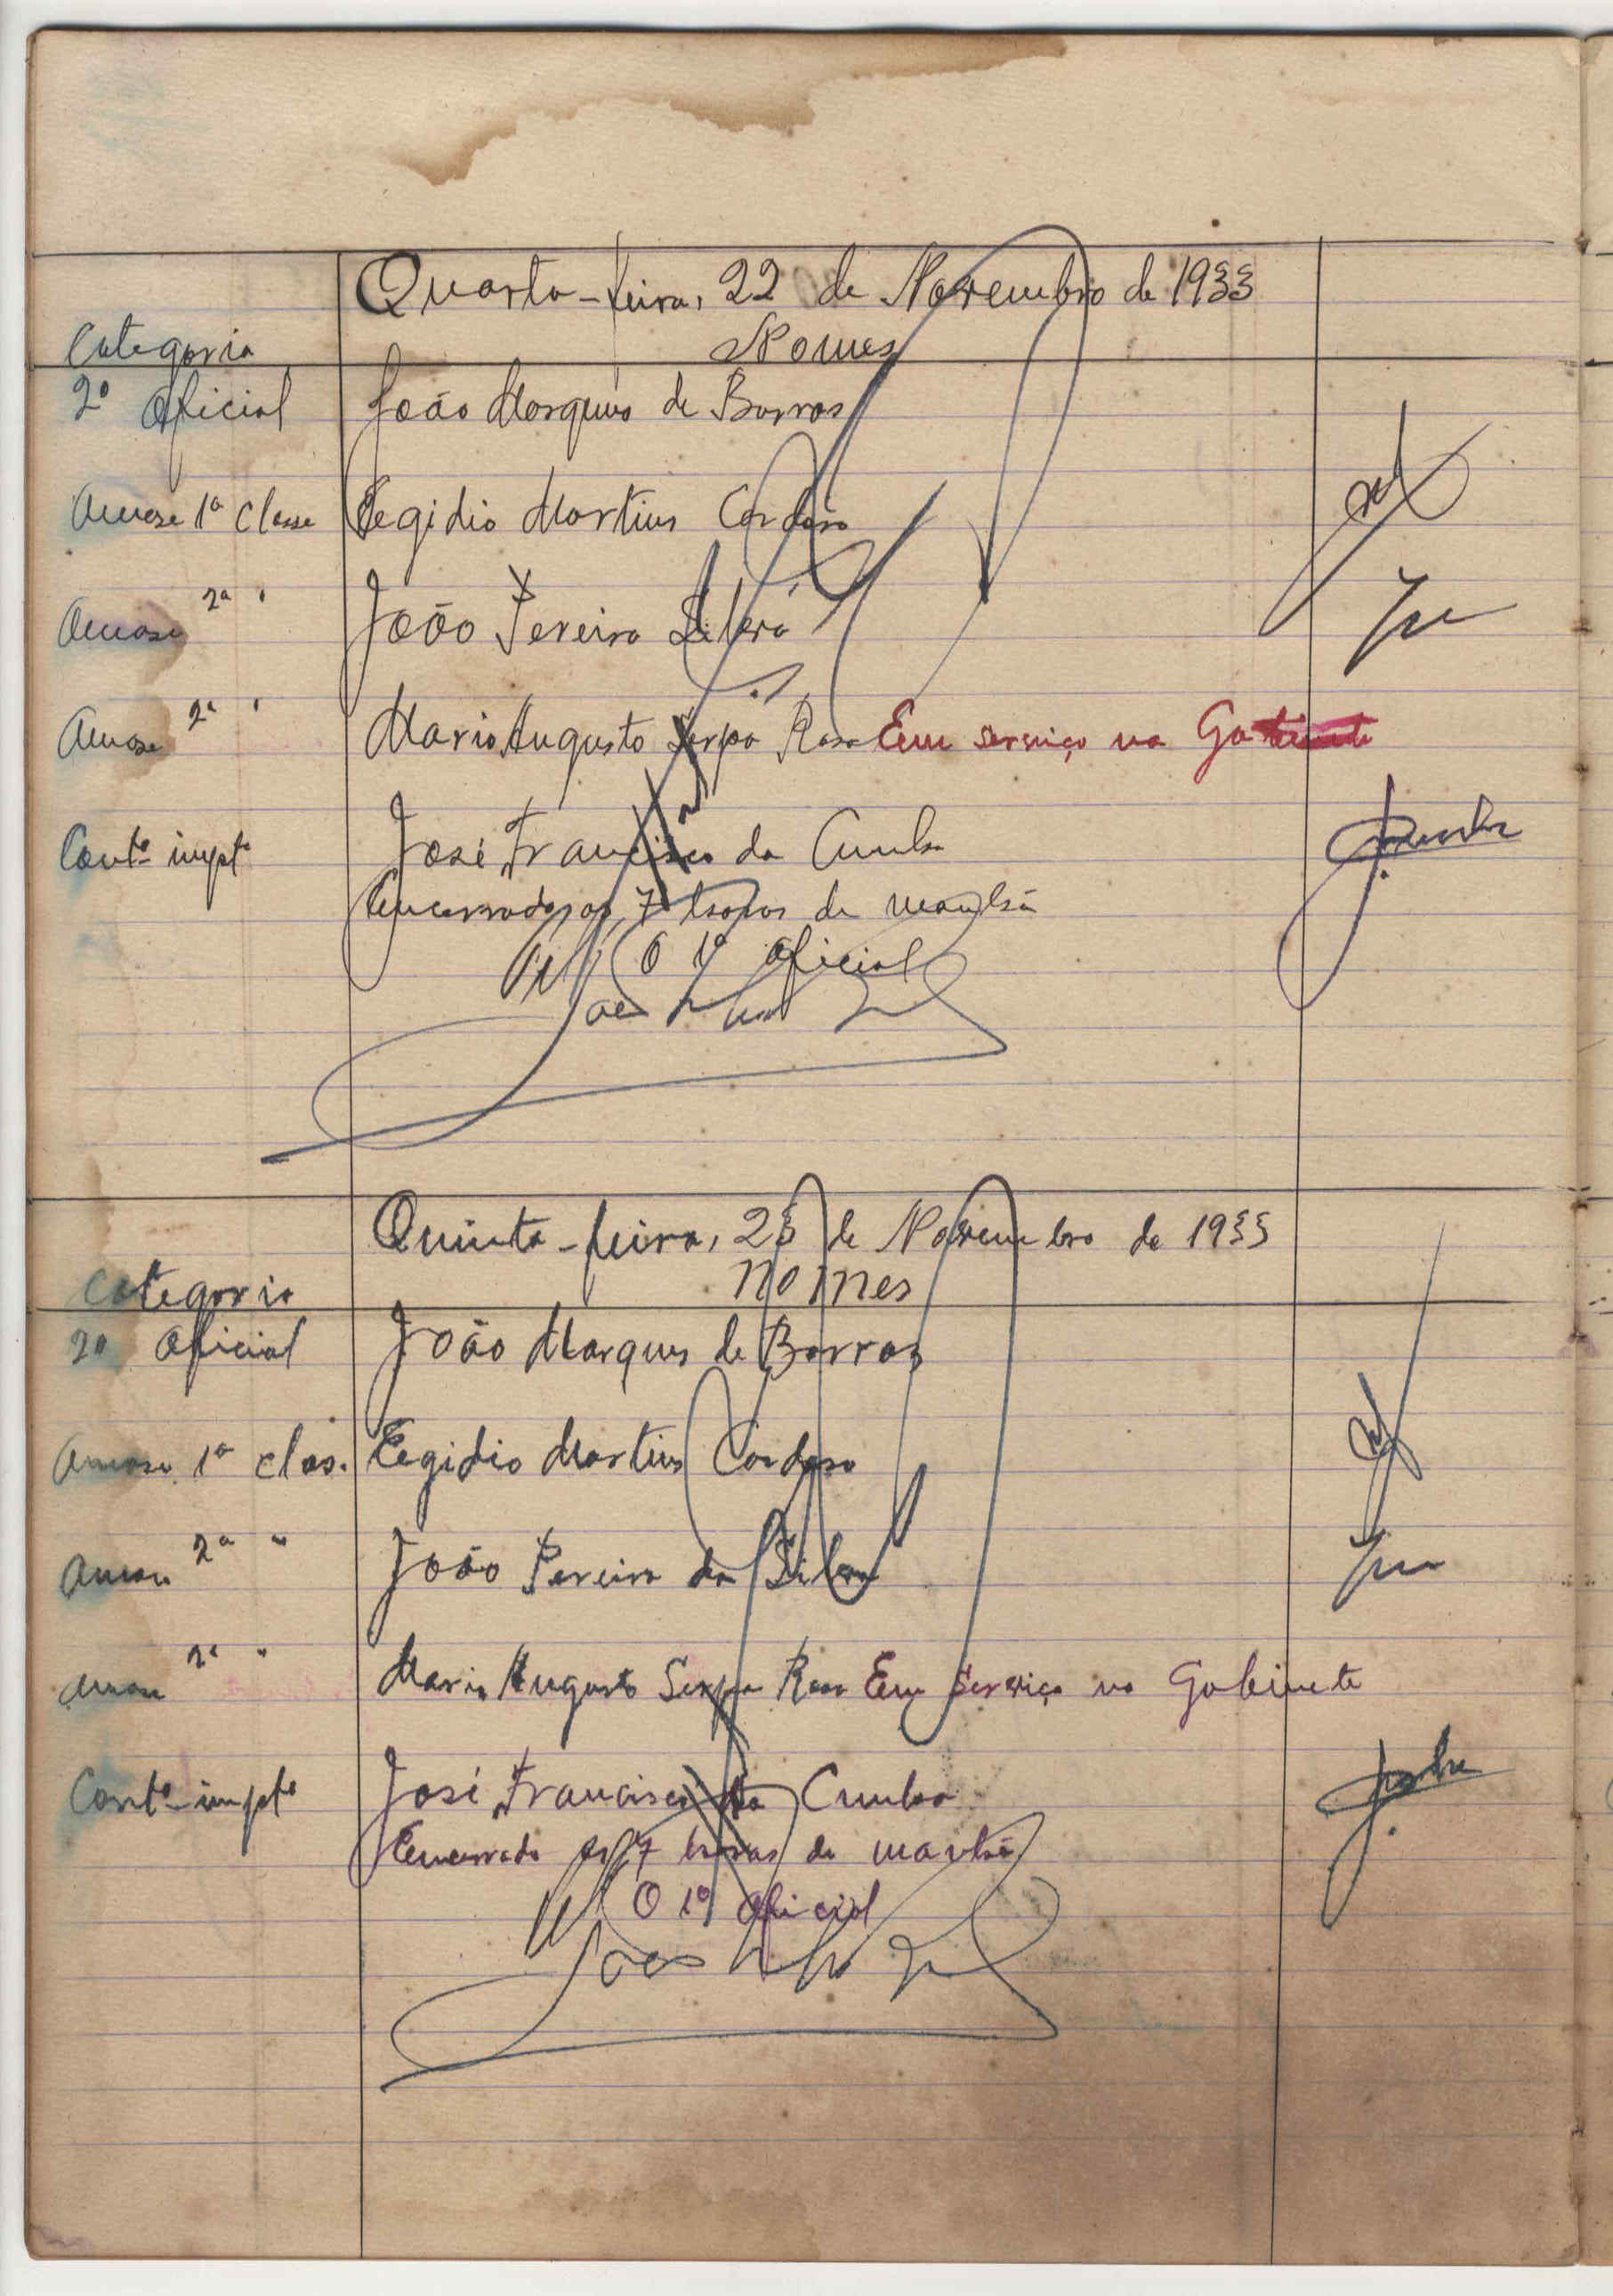 Quarta-feira, 22 de Novembro de 1933
Categoria Nomes
2º Oficial João Marques de Barros
Aman.se 1ª Classe Eegidio Martins Cardoso
Aman.se 2ª " João Pereira Silva
Aman.se 2ª " Mario Augusto Serpa Rosa Em serviço no Gabinete
Contº impte José Francisco da Cunha
Encerrado as 7 horas da manhã
O 1º Oficial
Quinta-feira, 23 de Novembro de 1933
Categoria Nomes
2º Oficial João Marques de Barros
Aman.se 1ª clas. Eegidio Martins Cardoso
Aman.se 2ª " João Pereira da Silva
Aman.se 2ª " Mario Augusto Serpa Rosa Em Serviço no Gabinete
Contº impte José Francisco da Cunha
Encerrado as 7 horas da manhã
O 1º Oficial